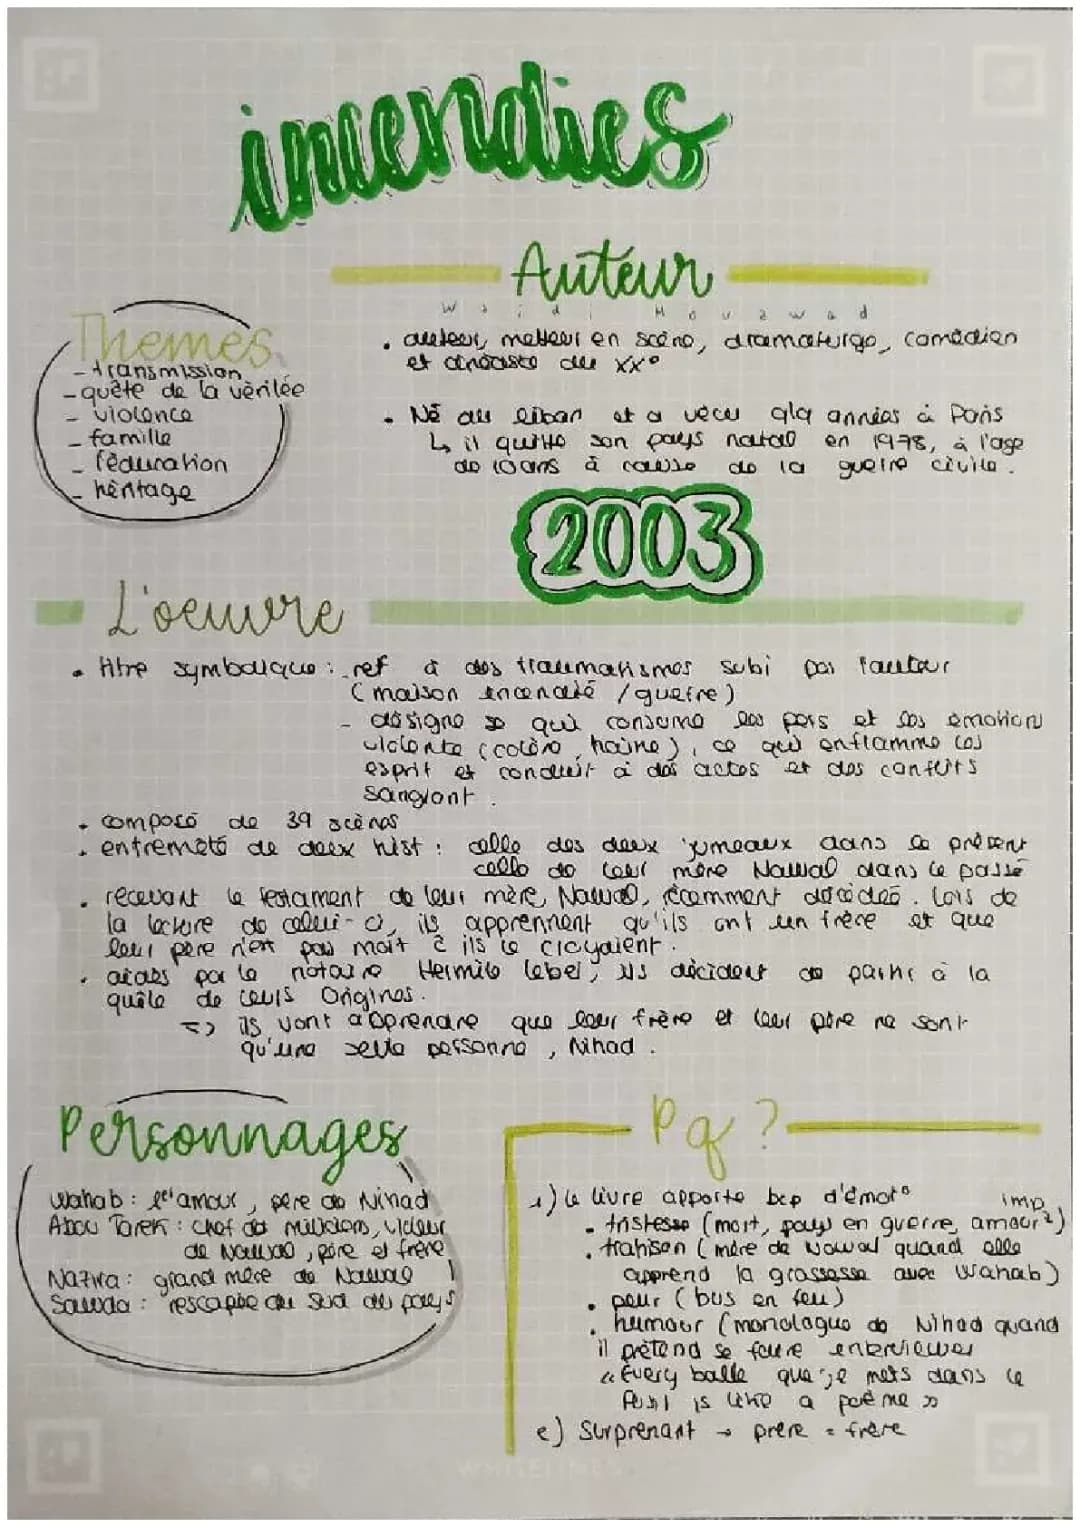 incendies
Auteur
Wajdi Mouawad
• auteur, metteur en scène, dramaturge, comédien
et cinéaste du XX°
• Né au liban et a vécu qlq années à Paris
↳ il quitte son pays natal en 1978, à l'age
de 10 ans à cause de la guerre civile.
Themes
- transmission
- quête de la vérité
- violence
- famille
- l'éducation
- héritage
2003
L'oeuvre
• titre symbolique : ref à des traumatismes subi par l'auteur
(maison encendié / guerre)
- désigne se qui consume les pers et les émotion
violente (colère, haine), ce qui enflamme les
esprit et conduit à des actes et des conflits
sanglant.
• composé de 39 scènes
• entremêté de deux hist : celle des deux jumeaux dans le présent
celle de leur mère Nawal dans le passé
• recevant le testament de leur mère, Nawal, récemment décédée. Lors de
la lecture de celui-ci, ils apprennent qu'ils ont un frère et que
leur père n'est pas mort c ils le croyaient.
• aidés par le notaire Hermile Lebel, ils décident de partir à la
quête de leurs Origines.
=> ils vont apprendre que leur frère et leur père ne sont
qu'une seule personne, Nihad.
Personnages
Wahab : 1er amour, père de Nihad
Abou Tarek : chef des miliciens, violeur
de Nawal, père et frère
Nazira : grand mère de Nawal
Sawda : rescapée du Sud du pays
Pq ?
1) le livre apporte bcp d'émot° imp
• tristesse (mort, pays en guerre, amour²)
• trahison (mère de Nawal quand elle
apprend la grossesse avec Wahab)
• peur (bus en feu)
• humour (monologue de Nihad quand
il prétend se faire interviewer
« Every balle que je mets dans le
fusil is like a poème »
2) Surprenant → prère = frère
WHITELINES